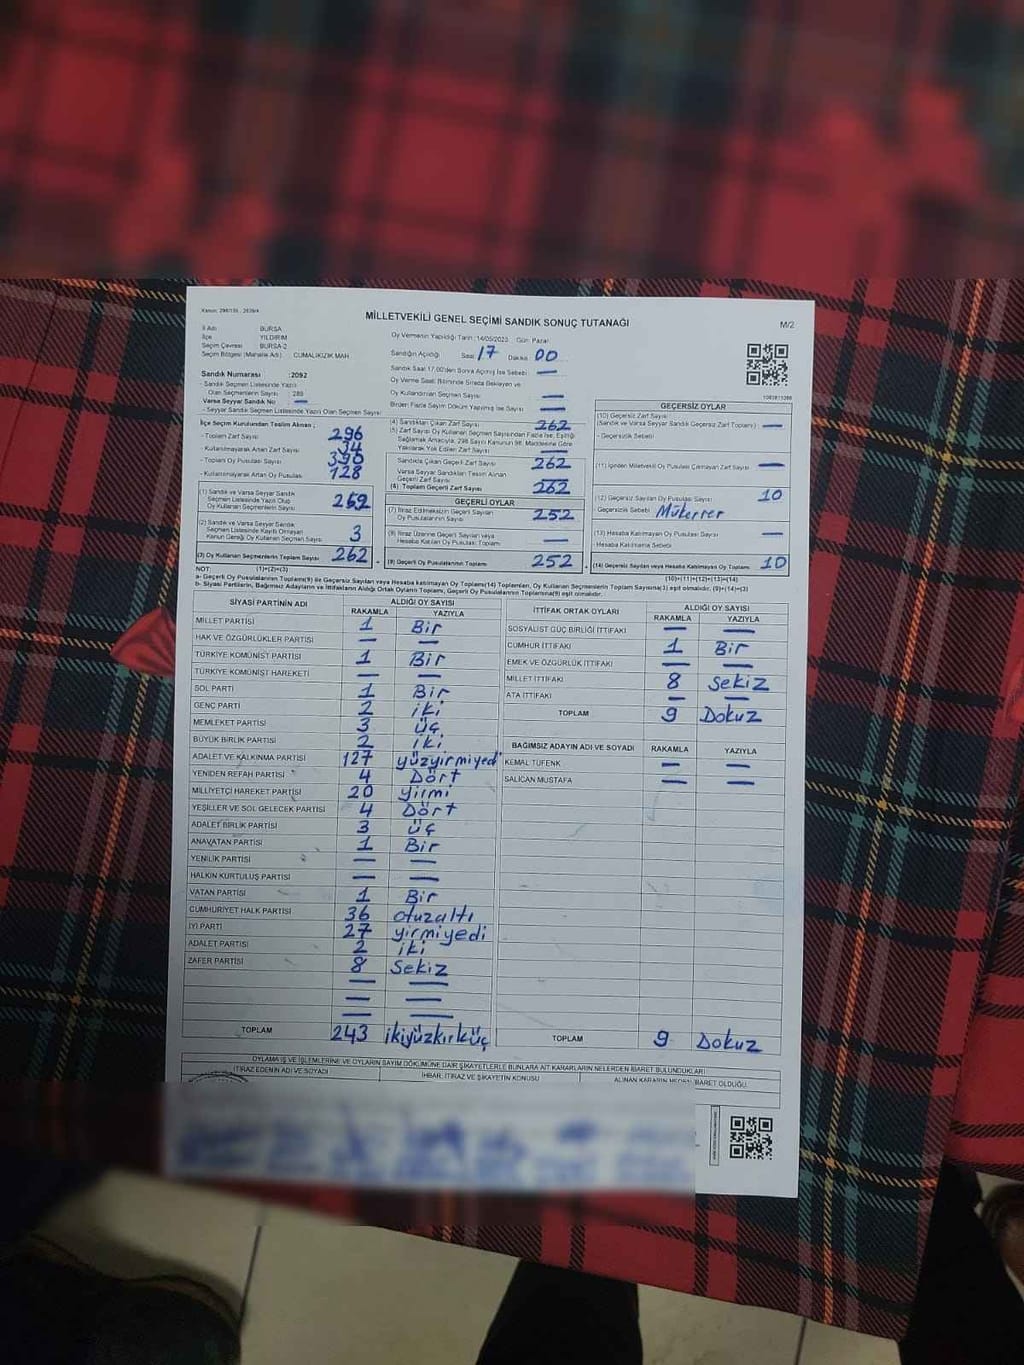 MİLLETVEKİLİ GENEL SEÇİMİ SANDIK SONUÇ TUTANAĞI
M/2
İl Adı BURSA
İlçe YILDIRIM
Seçim Çevresi BURSA-2
Seçim Bölgesi (Mahalle Adı) CUMALIKIZIK MAH
Oy Vermenin Yapıldığı Tarih : 14/05/2023 Gün: Pazar
Sandığın Açıldığı Saat 17 Dakika 00
Sandık Saat 17.00'den Sonra Açılmış İse Sebebi —
Oy Verme Saati Bitiminde Sırada Bekleyen ve
Oy Kullandırılan Seçmen Sayısı —
Birden Fazla Sayım Döküm Yapılmış İse Sayısı —
Sandık Numarası :2092
- Sandık Seçmen Listesinde Yazılı
Olan Seçmenlerin Sayısı : 289
Varsa Seyyar Sandık No —
- Seyyar Sandık Seçmen Listesinde Yazılı Olan Seçmen Sayısı
İlçe Seçim Kurulundan Teslim Alınan ;
- Toplam Zarf Sayısı 296
- Kullanılmayarak Artan Zarf Sayısı 34
- Toplam Oy Pusulası Sayısı 390
- Kullanılmayarak Artan Oy Pusulası 128
(1) Sandık ve Varsa Seyyar Sandık
Seçmen Listesinde Yazılı Olup
Oy Kullanan Seçmenlerin Sayısı 259
(2) Sandık ve Varsa Seyyar Sandık
Seçmen Listesinde Kayıtlı Olmayan
Kanun Gereği Oy Kullanan Seçmen Sayısı 3
(3) Oy Kullanan Seçmenlerin Toplam Sayısı 262
(1)+(2)=(3)
(4) Sandıktan Çıkan Zarf Sayısı 262
(5) Zarf Sayısı Oy Kullanan Seçmen Sayısından Fazla İse, Eşitliği
Sağlamak Amacıyla, 298 Sayılı Kanunun 98. Maddesine Göre
Yakılarak Yok Edilen Zarf Sayısı —
Sandıkta Çıkan Geçerli Zarf Sayısı 262
Varsa Seyyar Sandıktan Teslim Alınan
Geçerli Zarf Sayısı —
(6) Toplam Geçerli Zarf Sayısı 262
GEÇERLİ OYLAR
(7) İtiraz Edilmeksizin Geçerli Sayılan
Oy Pusulalarının Sayısı 252
(8) İtiraz Üzerine Geçerli Sayılan veya
Hesaba Katılan Oy Pusulası Toplamı —
(9) Geçerli Oy Pusulalarının Toplamı 252
GEÇERSİZ OYLAR
(10) Geçersiz Zarf Sayısı
(Sandık ve Varsa Seyyar Sandık Geçersiz Zarf Toplamı) —
- Geçersizlik Sebebi
(11) İçinden Milletvekili Oy Pusulası Çıkmayan Zarf Sayısı —
(12) Geçersiz Sayılan Oy Pusulası Sayısı 10
Geçersizlik Sebebi Mükerrer
(13) Hesaba Katılmayan Oy Pusulası Sayısı —
Hesaba Katılmama Sebebi
(14) Geçersiz Sayılan veya Hesaba Katılmayan Oy Toplamı 10
(10)+(11)+(12)+(13)=(14)
NOT:
a- Geçerli Oy Pusulalarının Toplamı(9) ile Geçersiz Sayılan veya Hesaba katılmayan Oy Toplamı(14) Toplamları, Oy Kullanan Seçmenlerin Toplam Sayısına(3) eşit olmalıdır. (9)+(14)=(3)
b- Siyasi Partilerin, Bağımsız Adayların ve İttifakların Aldığı Ortak Oyların Toplamı, Geçerli Oy Pusulalarının Toplamına(9) eşit olmalıdır.
SİYASİ PARTİNİN ADI ALDIĞI OY SAYISI
RAKAMLA YAZIYLA
MİLLET PARTİSİ 1 Bir
HAK VE ÖZGÜRLÜKLER PARTİSİ — —
TÜRKİYE KOMÜNİST PARTİSİ 1 Bir
TÜRKİYE KOMÜNİST HAREKETİ — —
SOL PARTİ 1 Bir
GENÇ PARTİ 2 iki
MEMLEKET PARTİSİ 3 üç
BÜYÜK BİRLİK PARTİSİ 2 iki
ADALET VE KALKINMA PARTİSİ 127 yüzyirmiyedi
YENİDEN REFAH PARTİSİ 4 Dört
MİLLİYETÇİ HAREKET PARTİSİ 20 yirmi
YEŞİLLER VE SOL GELECEK PARTİSİ 4 Dört
ADALET BİRLİK PARTİSİ 3 üç
ANAVATAN PARTİSİ 1 Bir
YENİLİK PARTİSİ — —
HALKIN KURTULUŞ PARTİSİ — —
VATAN PARTİSİ 1 Bir
CUMHURİYET HALK PARTİSİ 36 otuzaltı
İYİ PARTİ 27 yirmiyedi
ADALET PARTİSİ 2 iki
ZAFER PARTİSİ 8 Sekiz
— —
— —
— —
TOPLAM 243 ikiyüzkırküç
İTTİFAK ORTAK OYLARI ALDIĞI OY SAYISI
RAKAMLA YAZIYLA
SOSYALİST GÜÇ BİRLİĞİ İTTİFAKI — —
CUMHUR İTTİFAKI 1 Bir
EMEK VE ÖZGÜRLÜK İTTİFAKI — —
MİLLET İTTİFAKI 8 Sekiz
ATA İTTİFAKI — —
TOPLAM 9 Dokuz
BAĞIMSIZ ADAYIN ADI VE SOYADI RAKAMLA YAZIYLA
KEMAL TÜFENK — —
SALİCAN MUSTAFA — —
TOPLAM 9 Dokuz
OYLAMA İŞ VE İŞLEMLERİNE VE OYLARIN SAYIM DÖKÜMÜNE DAİR ŞİKAYETLERLE BUNLARA AİT KARARLARIN NELERDEN İBARET BULUNDUKLARI
İTİRAZ EDENİN ADI VE SOYADI İHBAR, İTİRAZ VE ŞİKAYETİN KONUSU